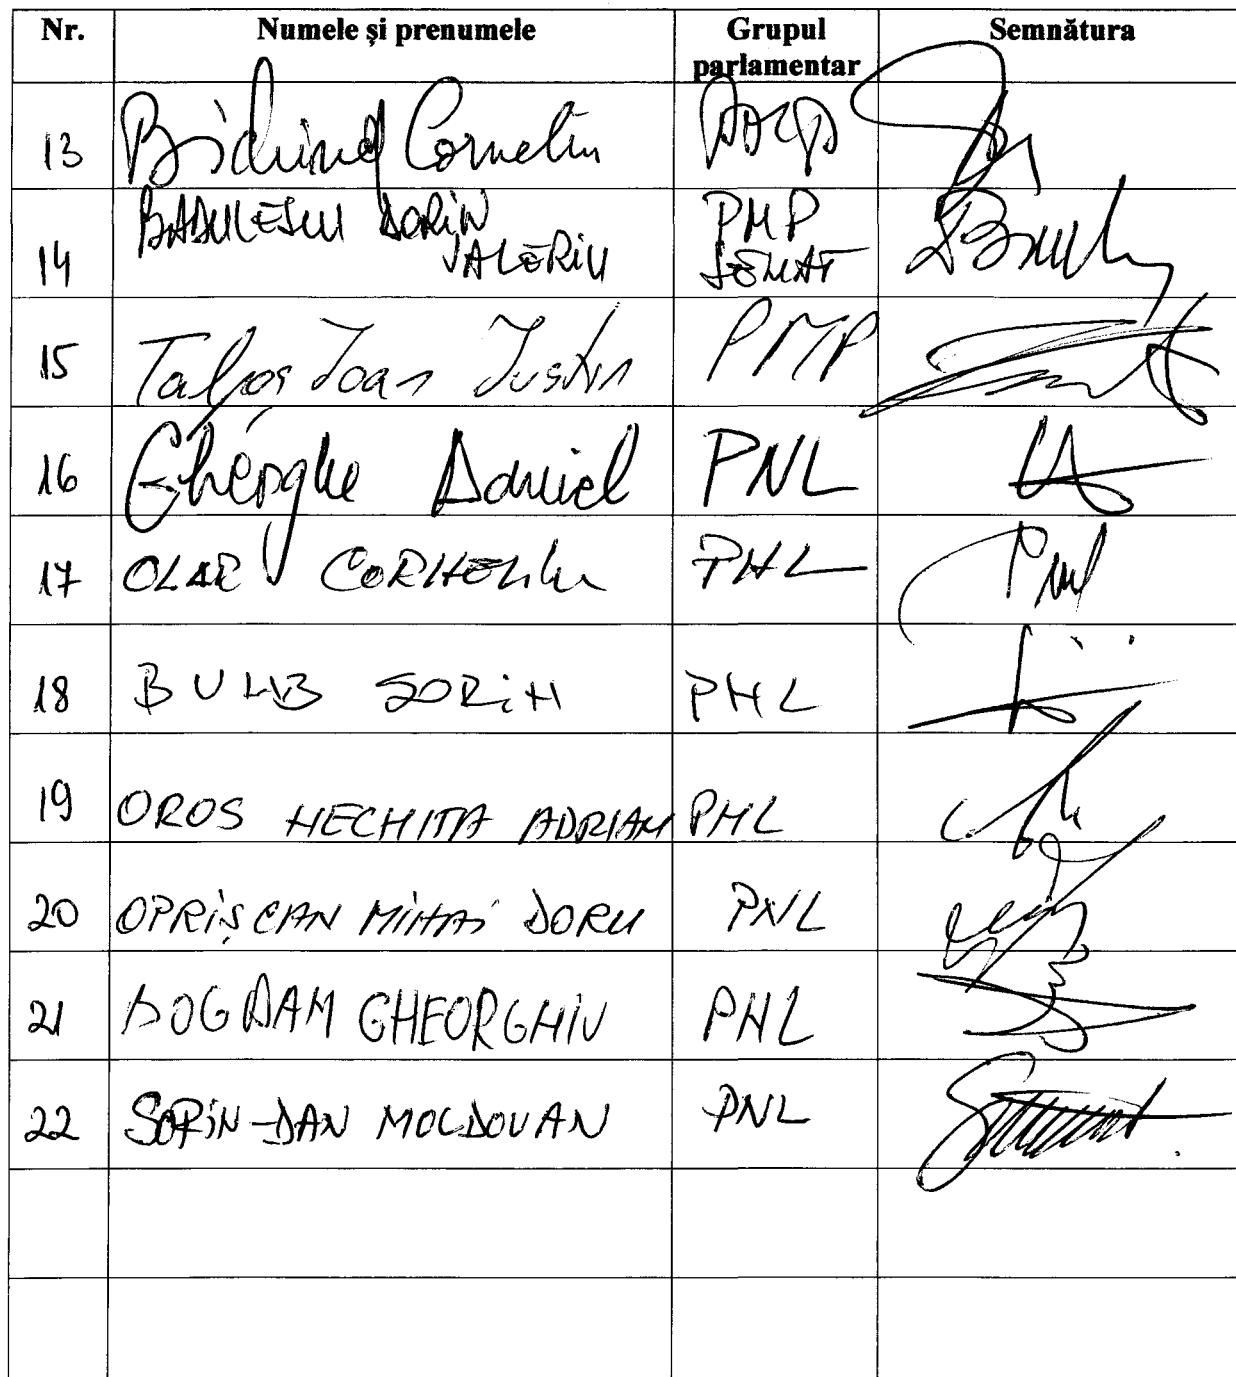 Nr. Numele și prenumele Grupul parlamentar Semnătura
13 Cornelia
14 BADULESCU DORIN VALERIU PMP SENAT
15 Talpoș Ioan Iustin PMP
16 Gheorghe Daniel PNL
17 OLAR CORNELIU PNL
18 BUMB SORIN PNL
19 OROS NECHITA ADRIAN PNL
20 OPRIȘCAN MIHAI DORU PNL
21 BOGDAN GHEORGHIU PNL
22 SORIN-DAN MOLDOVAN PNL